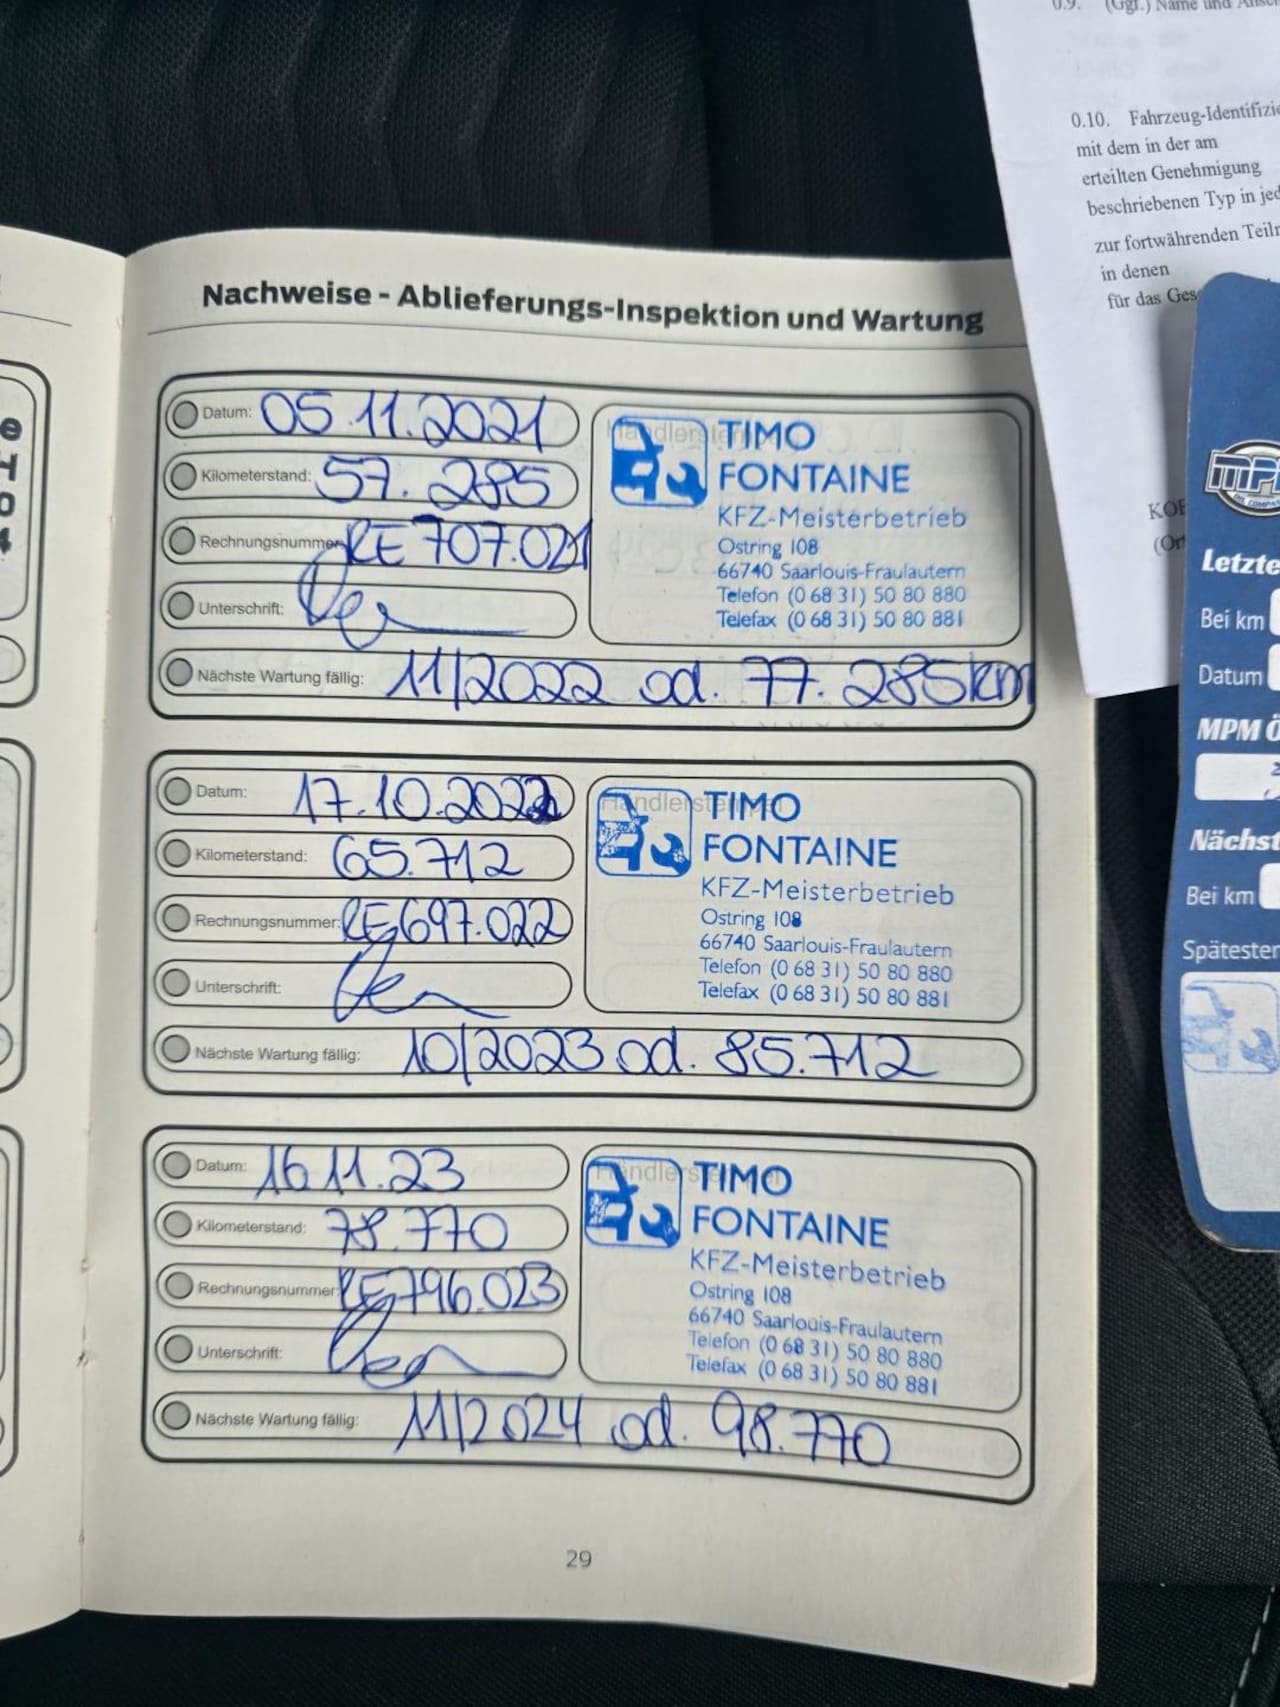 0.9. (Ggf.) Name und
0.10. Fahrzeug-Identifizie
mit dem in der am
erteilten Genehmigung
beschriebenen Typ in jed
zur fortwährenden Teiln
in denen
für das Ges
Nachweise - Ablieferungs-Inspektion und Wartung
Datum: 05.11.2021
Kilometerstand: 57.285
Rechnungsnummer: RE 707.021
Unterschrift:
Nächste Wartung fällig: 11/2022 od. 77.285km
Händlerstempel
TIMO
FONTAINE
KFZ-Meisterbetrieb
Ostring 108
66740 Saarlouis-Fraulautern
Telefon (0 68 31) 50 80 880
Telefax (0 68 31) 50 80 881
Datum: 17.10.2022
Kilometerstand: 65.712
Rechnungsnummer: RE697.022
Unterschrift:
Nächste Wartung fällig: 10/2023 od. 85.712
Händlerstempel
TIMO
FONTAINE
KFZ-Meisterbetrieb
Ostring 108
66740 Saarlouis-Fraulautern
Telefon (0 68 31) 50 80 880
Telefax (0 68 31) 50 80 881
Datum: 16.11.23
Kilometerstand: 78.770
Rechnungsnummer: RE796.023
Unterschrift:
Nächste Wartung fällig: 11/2024 od. 98.770
Händlerstempel
TIMO
FONTAINE
KFZ-Meisterbetrieb
Ostring 108
66740 Saarlouis-Fraulautern
Telefon (0 68 31) 50 80 880
Telefax (0 68 31) 50 80 881
29
MPM
Letzte
Bei km
Datum
MPM Ö
Nächst
Bei km
Spätesten